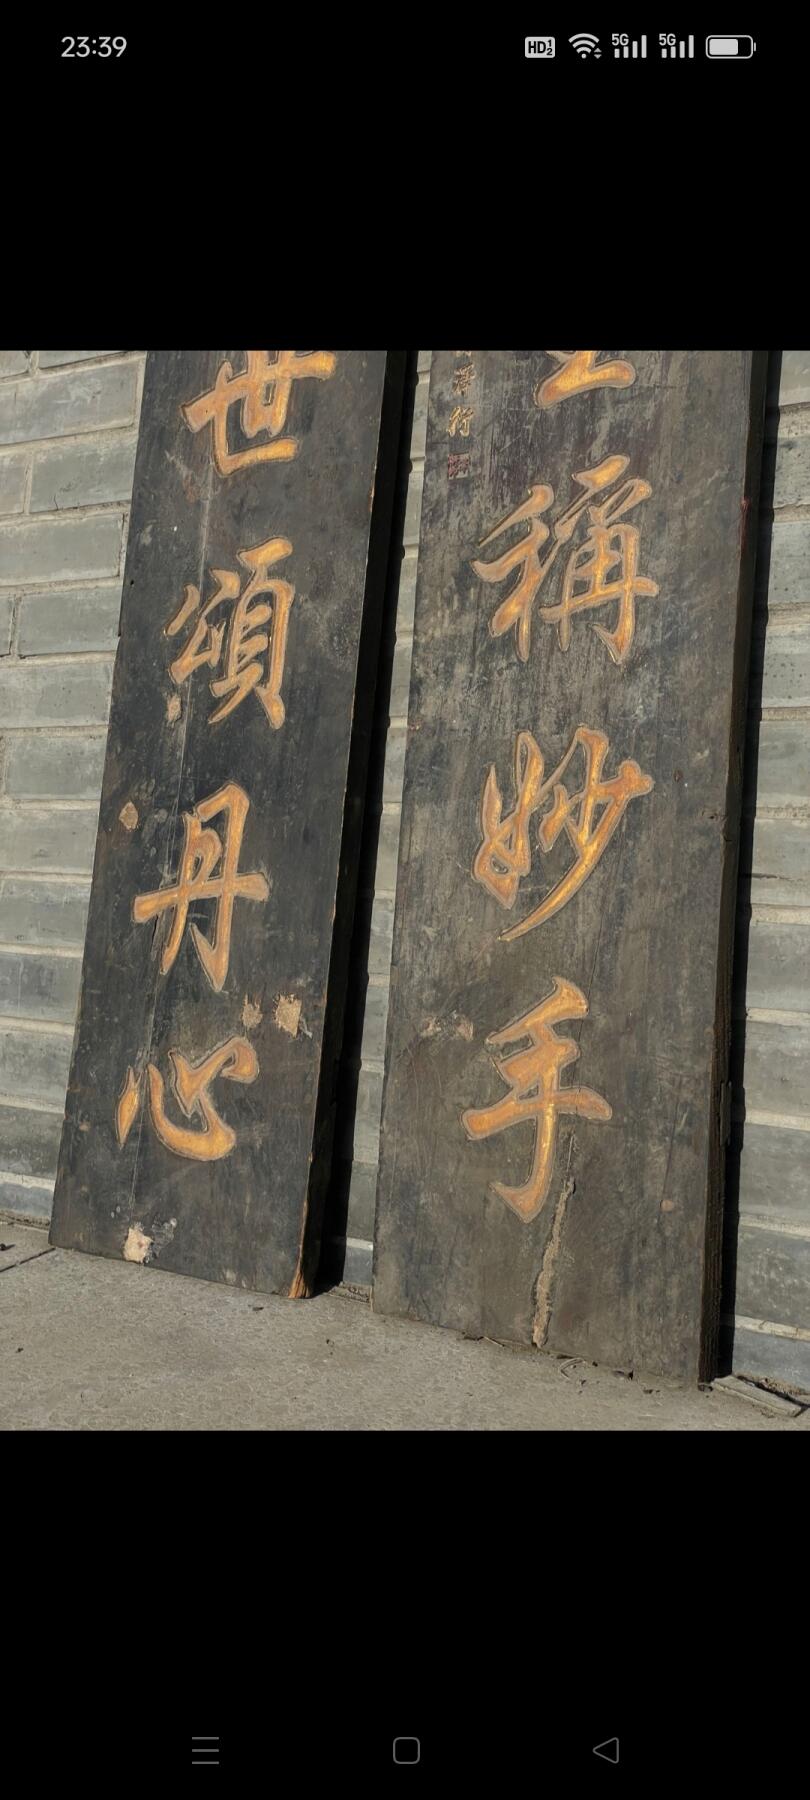 23:39
HD 1 2 5G 5G
稱妙手
行
世頌丹心